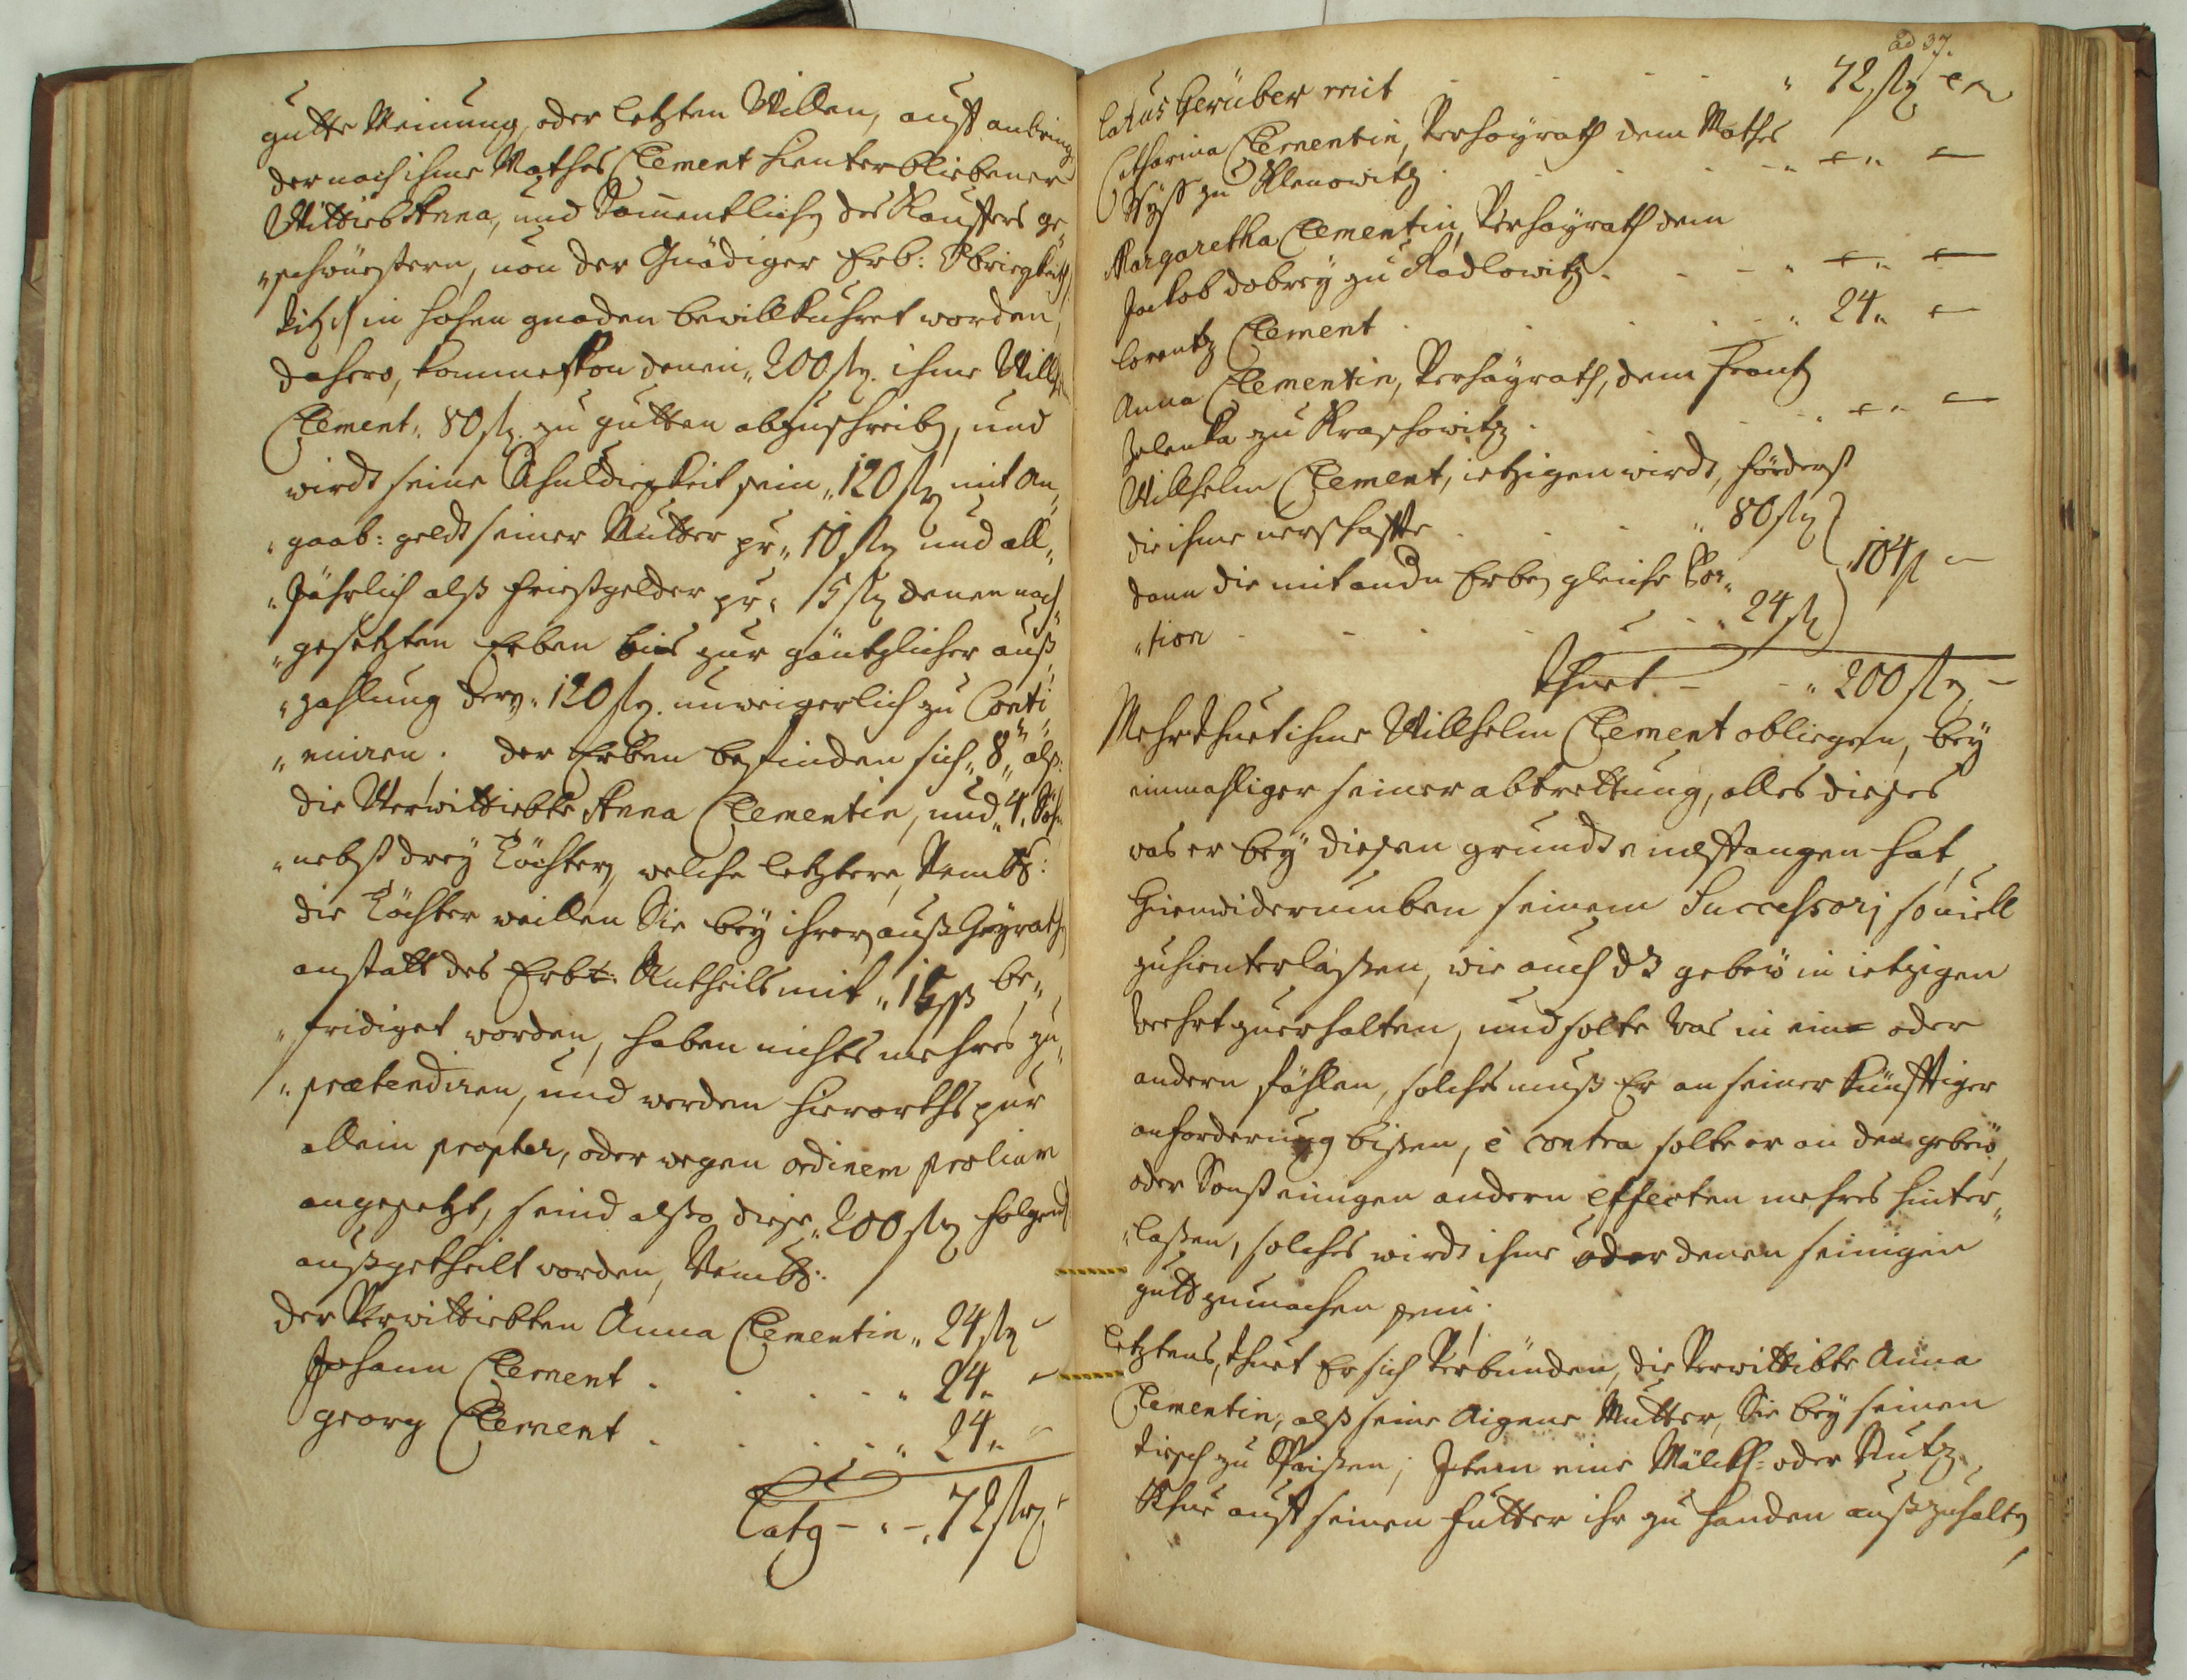 gutte Meinung, oder letzten Willen, auff anbring
der nach ihme Mathes Clement hinterbliebener
Wittieb Anna, und Sammentlichen des Kauffers ge„
„schwüstern, von der Gnädiger Erb: Obrigkeith
in hohen gnaden bewillkuhret worden,
dahero, kommet von denen„ 200 ß. ihme Willh:
Clement„ 80 ß. zu gutten abzuschreiben, und
wirdt seine Schuldiegkeit sein„ 120 ß mit An„
„gaab: geldt seiner Mutter pr„ 10 ß und all„
„Jährlich alß friestgelder pr„ 15 ß denen nach„
„gesetzten Erben bies zur gäntzlicher auß„
„zahlung deren„ 120 ß. unweigerlich zu Conti„
„nuiren. der Erben befinden sich„ 8„ alß:
die Verwittiebte Anna Clementin, und„ 4. Söhn
„nebst drey Töchtern, welche letztere, Nembl:
die Töchter weillen Sie bey ihrer außheyrath
anstatt des Erbt: Antheils mit„ 15 ß be„
„fridiget worden, haben nichts mehres zu„
„prætendiren, und werden hierorths pur
allein propter, oder wegen ordinem prolium
angesetzt, seind also diese„ 200 ß folgend
außgetheilt worden, Nembl:
der Verwittiebten Anna Clementin„ 24 ß –
Johann Clement . . . . „ 24„ –
Georg Clement . . . . „ 24„ –
Latq – . – „ 72 ß –
ad 37.
Latus herüber mit . . . „ 72 ß –
Catharina Clementin, Verhayrath dem Mathes
zu Klenowitz . . . . „ –„ –
Margaretha Clementin, Verhayrath dem
Jackob dobrey zu Radlowitz . . . „ –„ –
Lorentz Clement . . . . „ 24„ –
Anna Clementin, Verhayrath, dem Frantz
Jelenka zu Kraschowitz . . . „ –„ –
Willhelm Clement, ietzigen wirdt, förderst
die ihme verschaffte . . . „ 80 ß
dann die mit andern Erben gleiche Por„ 104 ß –
„tion . . . . „ 24 ß
Thuet – – „ 200 ß –
Mehr thuet ihme Willhelm Clement obliegen, bey
einmahliger seiner abtrettung, alles dieses
was er bey diesen grundt empfangen hat,
hienwiderumben seinem Successorj souiell
zuhienterlaßen, wie auch dz gebew in ietzigen
wehrt zuerhalten, und solte was in ein= oder
andern fählen, solches muß Er an seiner künfftiger
anforderung bißen, è contra solte er an den gebew,
oder Sonst einigen andern effecten mehres hinter„
„laßen, solches wirdt ihme oder denen seinigen
gutt zumachen sein.
Letztens, thuet Er sich Verbünden, die Verwittibte Anna
Clementin, alß seine Aigene Mutter, Sie bey seinen
tiesch zu Speißen; Item eine Mälckh= oder Nutz„
Khue auff seinen futter ihr zu handen außzuhalten,